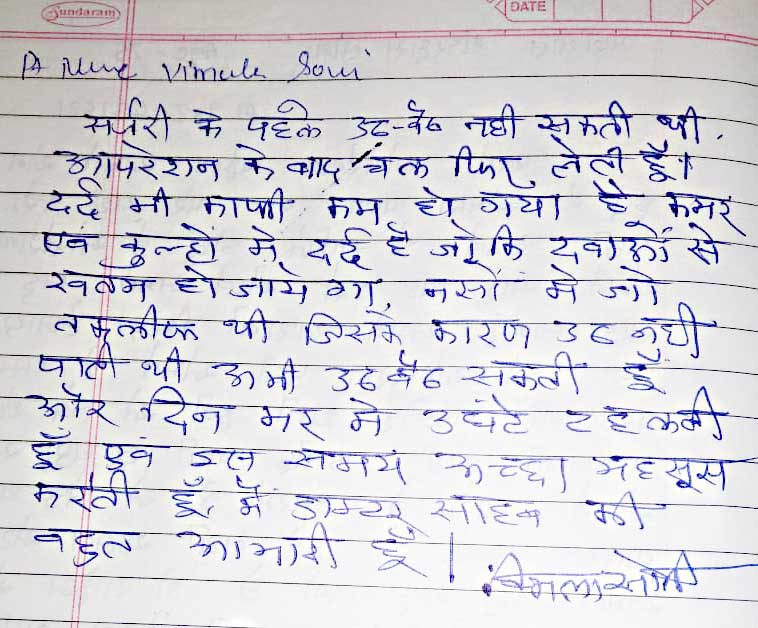 Sundaram
DATE
Pt Name Vimula Soni
सर्जरी के पहले उठ-बैठ नही सकती थी.
आपरेशन के बाद चल फिर लेती हूँ।
दर्द भी काफी कम हो गया है, कमर
एवं कुल्हो मे दर्द है जो कि दवाओं से
खतम हो जाये गा, नसों मे जो
तकलीफ थी जिसके कारण उठ नही
पाती थी अभी उठ बैठ सकती हूँ
और दिन भर मे 3 घंटे टहलती
हूँ एवं इस समय अच्छा महसूस
करती हूँ, मैं डाक्टर साहब की
बहुत आभारी हूँ।
विमला सोनी